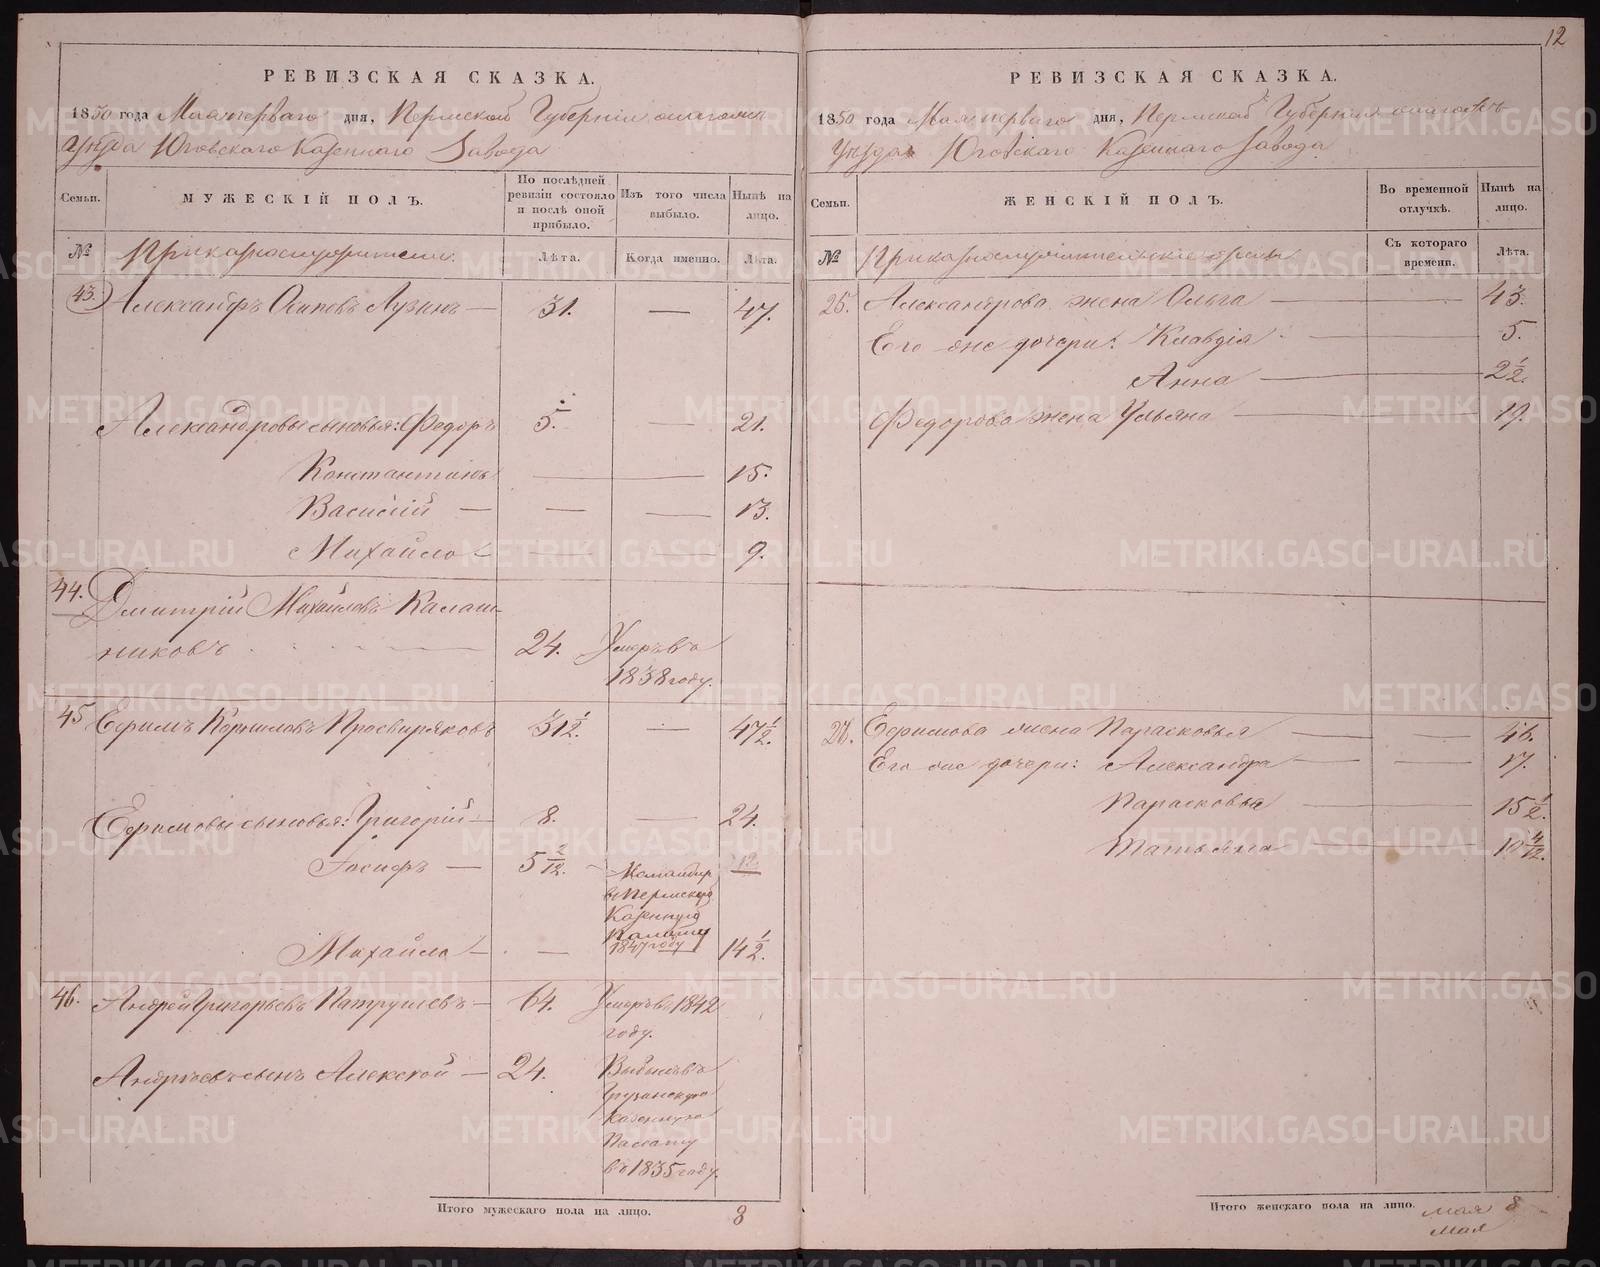 12
РЕВИЗСКАЯ СКАЗКА.
1850 года Мая перваго дня, Пермской Губерніи
уѣзда Юговскаго Казеннаго Завода
Семьи.
МУЖЕСКІЙ ПОЛЪ.
По послѣдней ревизіи состояло и послѣ оной прибыло.
Изъ того числа выбыло.
Нынѣ на лицо.
№
Лѣта.
Когда именно.
Лѣта.
43. Александръ Осиповъ Лузинъ — 31. — 47.
Александровы сыновья: Федоръ 5. — 21.
Константинъ — 15.
Василій — — — 13.
Михайло — — — 9.
44. Дмитрій Михайловъ Калаш-
никовъ 24. Умеръ въ
1838 году.
45 Ефимъ Корниловъ Просвиряковъ 31 1/2. — 47 1/2.
Ефимовы сыновья: Григорій — 8. — 24.
Іосифъ — 5 2/12. —
въ Пермскую
Казенную
Палату
1847 году
12
Михайло — — 14 1/2.
46. Андрей Григорьевъ Патрушевъ — 64. Умеръ въ 1842
году.
Андреевъ сынъ Алексей — 24. Выбылъ въ
Грузинскую
Казенную
Палату
въ 1835 году.
Итого мужескаго пола на лицо. 8
РЕВИЗСКАЯ СКАЗКА.
1850 года Мая перваго дня, Пермской Губерніи
уѣзда Юговскаго Казеннаго Завода
Семьи.
ЖЕНСКІЙ ПОЛЪ.
Во временной отлучкѣ.
Нынѣ на лицо.
№
Съ котораго времени.
Лѣта.
25. Александрова жена Ольга — — 43.
Его же дочери: Клавдія — 5.
Анна — 2 1/2.
Федорова жена Ульяна — 19.
Ефимова жена Парасковья — — 46.
Его же дочери: Александра — — 17.
Парасковья — 15 1/2.
Татьяна — 10 4/12.
Итого женскаго пола на лицо. 8
мая
мая
METRIKI.GASO-URAL.RU